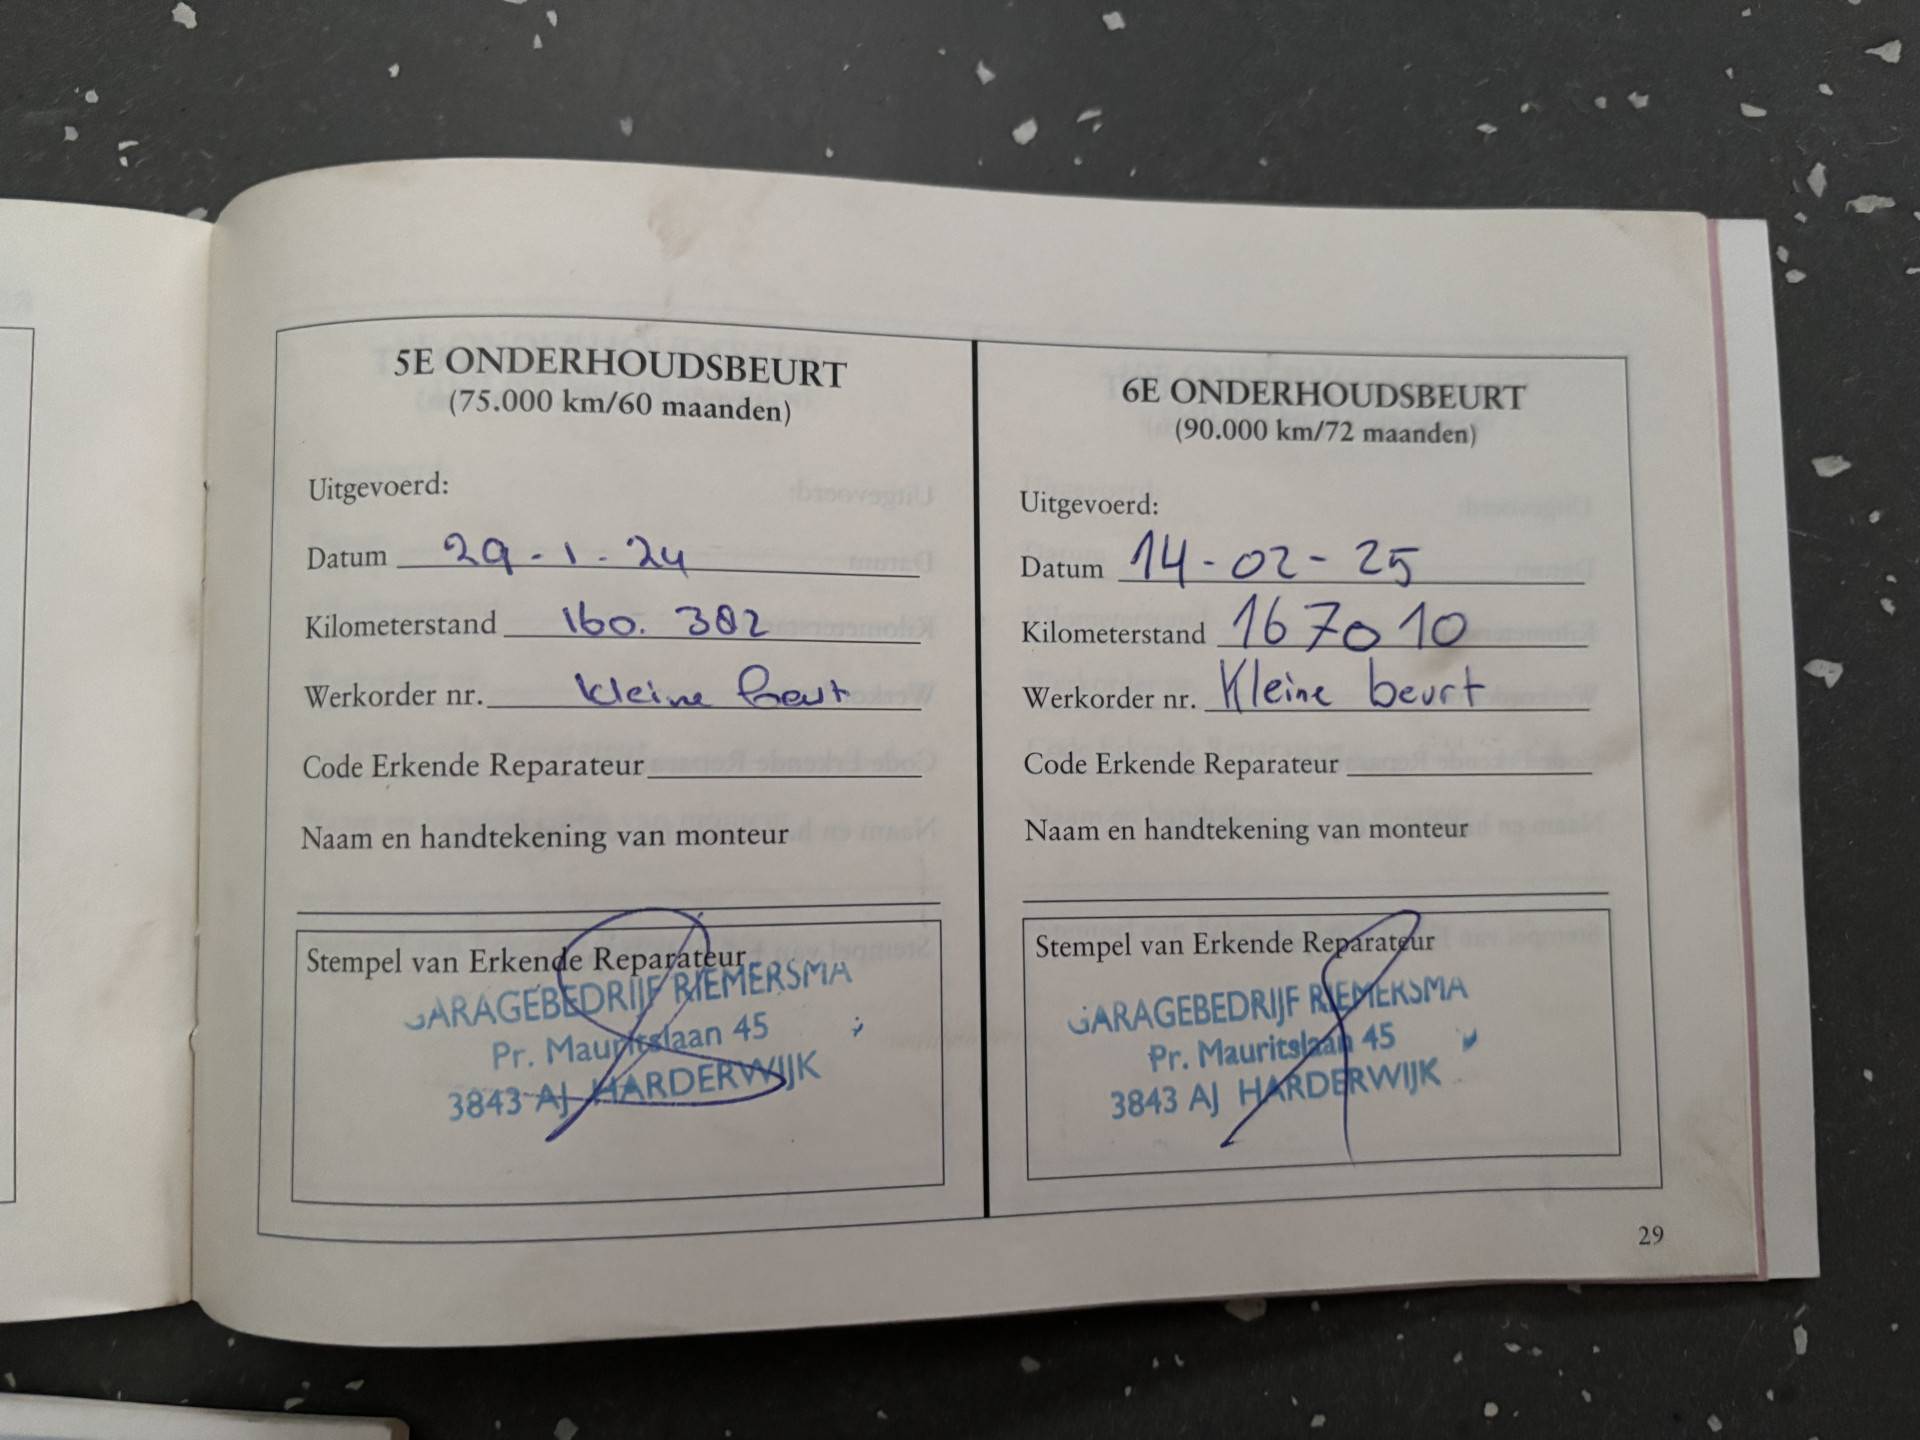 5E ONDERHOUDSBEURT
(75.000 km/60 maanden)
Uitgevoerd:
Datum 29-1-24
Kilometerstand 160.382
Werkorder nr. kleine beurt
Code Erkende Reparateur
Naam en handtekening van monteur
Stempel van Erkende Reparateur
GARAGEBEDRIJF RIEMERSMA
Pr. Mauritslaan 45
3843 AJ HARDERWIJK
6E ONDERHOUDSBEURT
(90.000 km/72 maanden)
Uitgevoerd:
Datum 14-02-25
Kilometerstand 167010
Werkorder nr. Kleine beurt
Code Erkende Reparateur
Naam en handtekening van monteur
Stempel van Erkende Reparateur
GARAGEBEDRIJF RIEMERSMA
Pr. Mauritslaan 45
3843 AJ HARDERWIJK
29